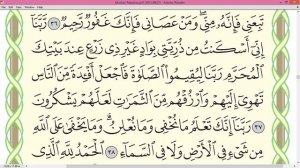 Adobe Reader
تَبِعَنِي فَإِنَّهُ مِنِّي وَمَنْ عَصَانِي فَإِنَّكَ غَفُورٌ رَّحِيمٌ ٣٦ رَّبَّنَا
إِنِّي أَسْكَنتُ مِن ذُرِّيَّتِي بِوَادٍ غَيْرِ ذِي زَرْعٍ عِندَ بَيْتِكَ
ٱلْمُحَرَّمِ رَبَّنَا لِيُقِيمُوا۟ ٱلصَّلَوٰةَ فَٱجْعَلْ أَفْـِٔدَةً مِّنَ ٱلنَّاسِ
تَهْوِىٓ إِلَيْهِمْ وَٱرْزُقْهُم مِّنَ ٱلثَّمَرَٰتِ لَعَلَّهُمْ يَشْكُرُونَ
٣٧ رَبَّنَآ إِنَّكَ تَعْلَمُ مَا نُخْفِى وَمَا نُعْلِنُ وَمَا يَخْفَىٰ عَلَى ٱللَّهِ
مِن شَىْءٍ فِى ٱلْأَرْضِ وَلَا فِى ٱلسَّمَآءِ ٣٨ ٱلْحَمْدُ لِلَّهِ ٱلَّذِى